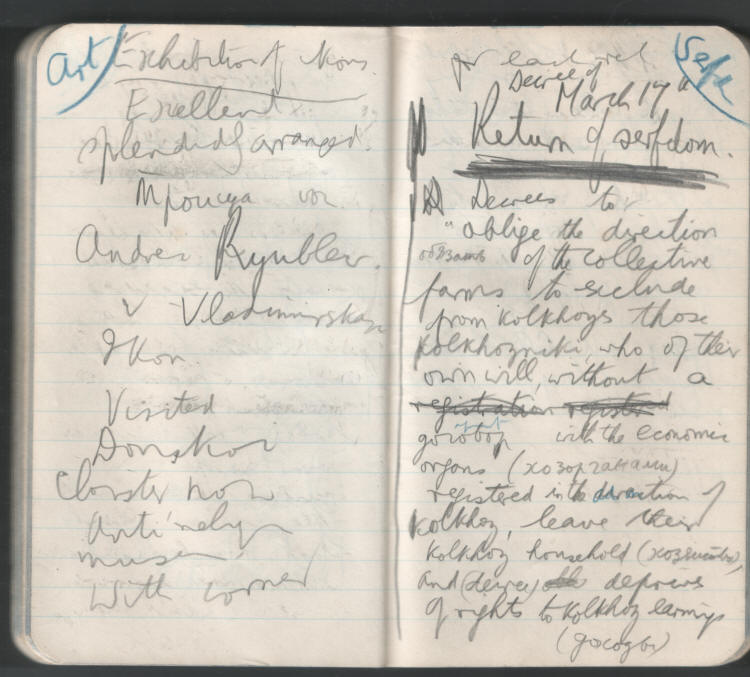 Art
Exhibition of Ikons.
Excellent
splendidly arranged.
Троица
Andrei Ryublev.
V Vladimirskaya
Ikon
Visited
Donskoi
cloister now
Anti relig
museum
With corner
for
Serf
Decree of
March 17th
Return of serfdom.
Decrees to
"oblige the direction
обязать of the collective
farms to exclude
from Kolkhozs those
Kolkhozniki, who of their
own will, without a
registration register
договор with the economic
organs (хозорганами)
registered in the direction of
Kolkhoz, leave their
Kolkhoz household (хозяйство),
and (decree) deprives
of rights to Kolkhoz earnings
(доходы)